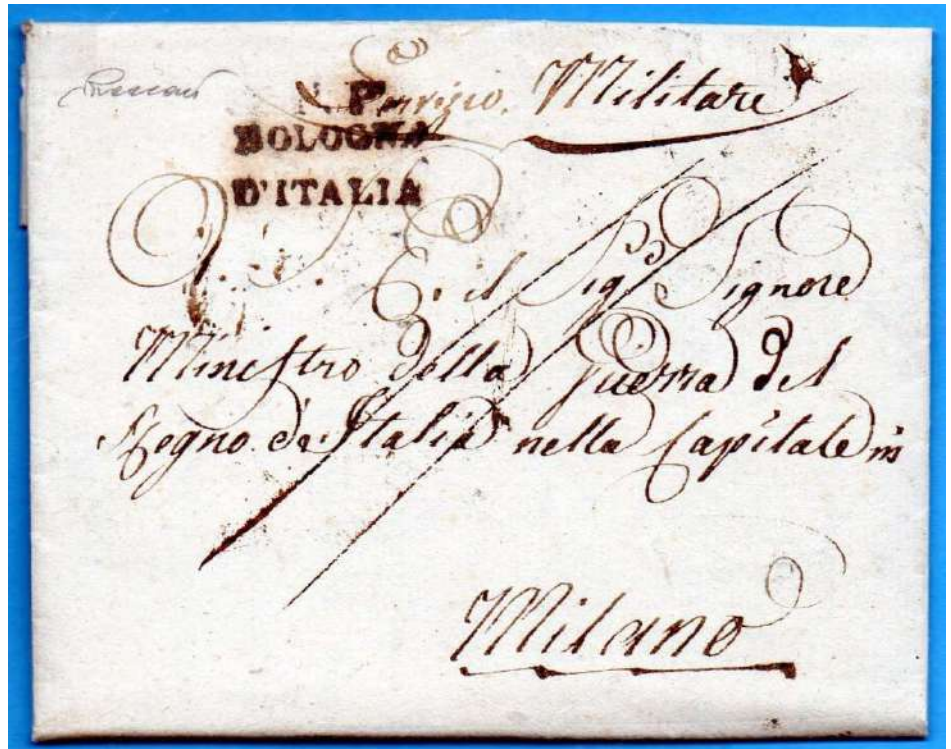 N. P.
Servizio Militare
BOLOGNA
D'ITALIA
E. il Sig.e Signore
Ministro della Guerra del
Regno d'Italia nella Capitale in
Milano